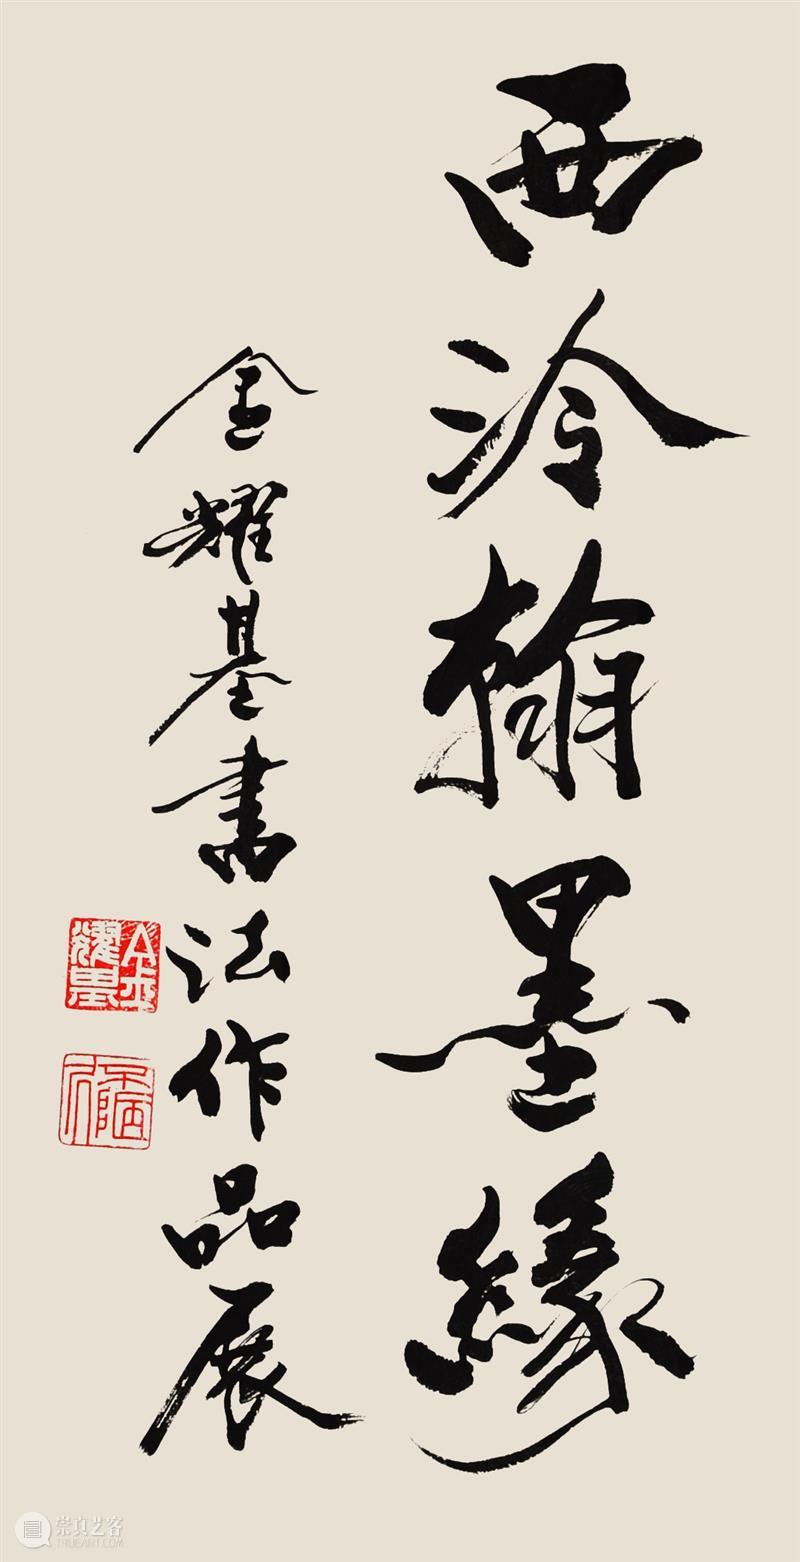 西泠翰墨緣
金耀基書法作品展
金耀基
崇真艺客
TRUEART.COM